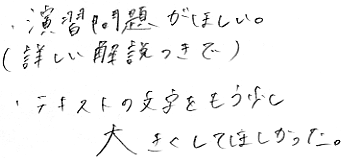 ・演習問題がほしい。
(詳しい解説つきで)
・テキストの文字をもう少し
大きくしてほしかった。